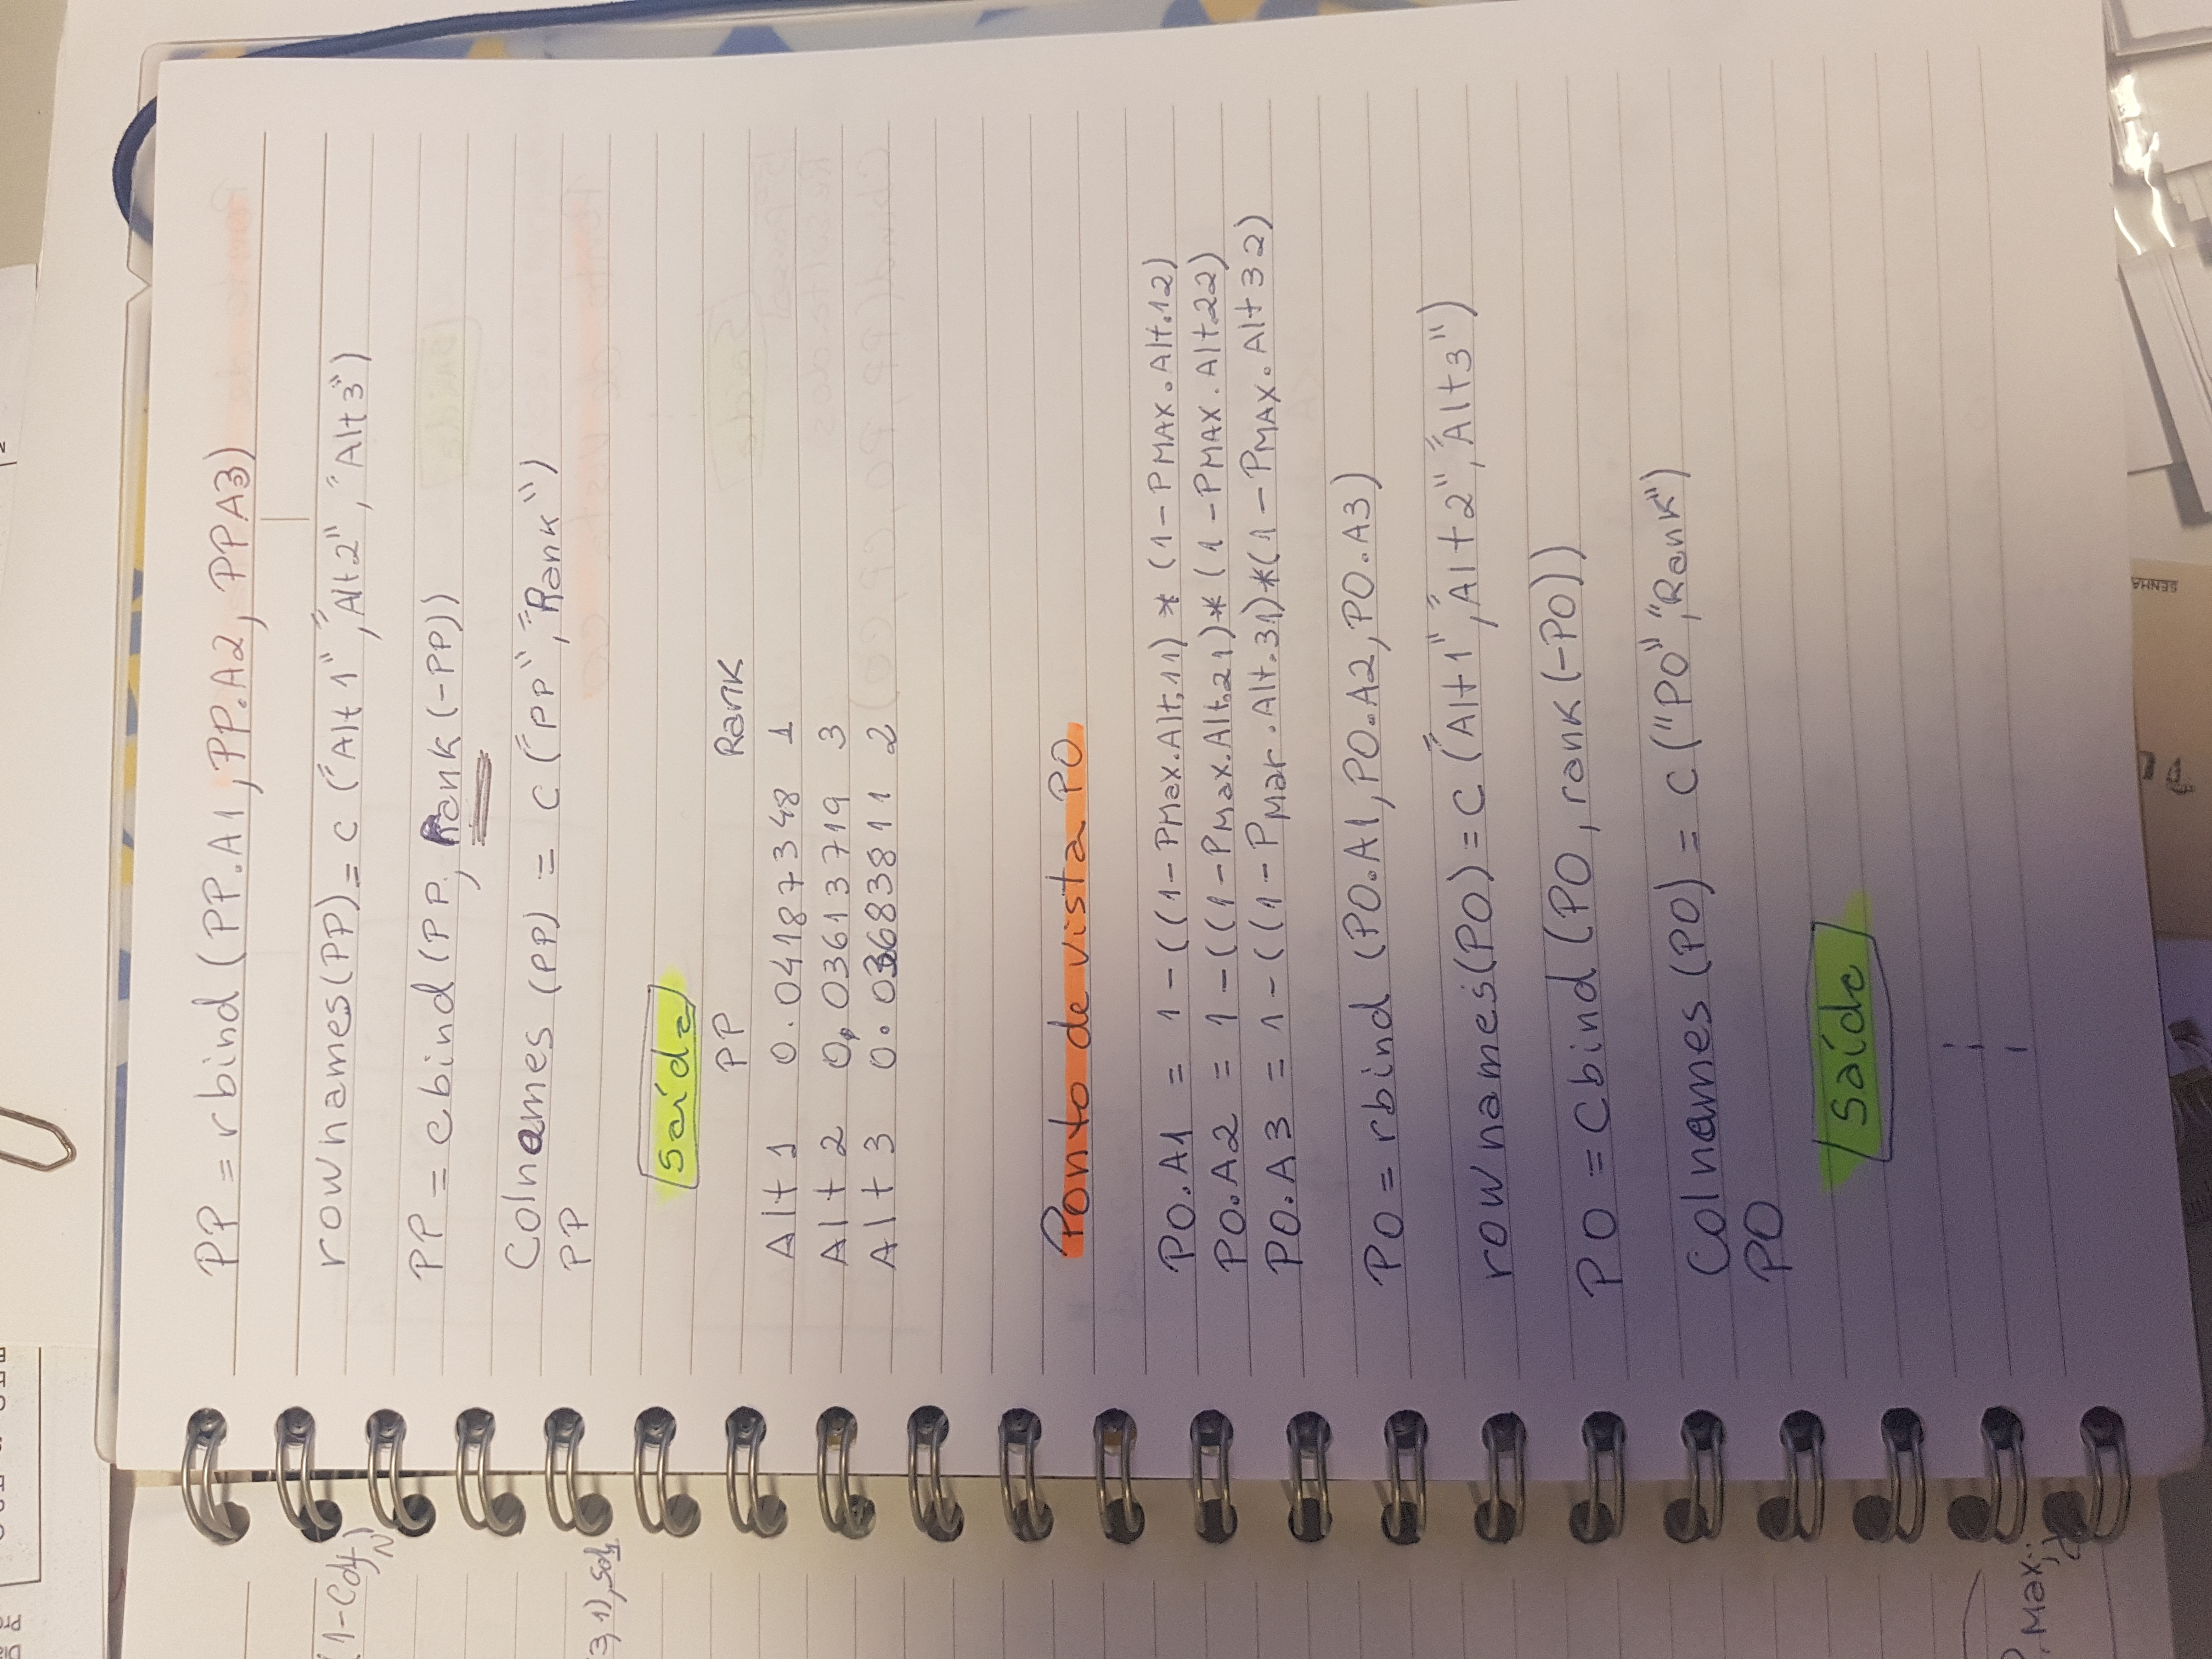 PP = rbind (PP.A1, PP.A2, PPA3)
rownames(PP) = c ("Alt 1", "Alt 2", "Alt 3")
PP = cbind (PP, Rank (-PP))
Colnames (PP) = c ("PP", "Rank")
PP
Saída
PP Rank
Alt 1 0.04187348 1
Alt 2 0.03613719 3
Alt 3 0.03683811 2
Ponto de vista PO
PO.A1 = 1-((1-PMax.Alt.11) * (1-PMAX.Alt.12)
PO.A2 = 1-((1-PMax.Alt.21)*(1-PMAX.Alt22)
PO.A3 = 1-((1-PMar.Alt.31)*(1-PMAX.Alt32)
PO = rbind (PO.A1, PO.A2, PO.A3)
rownames(PO) = C ("Alt1", "Alt2", "Alt3")
PO = Cbind (PO, rank (-PO))
Colnames (PO) = C ("PO", "Rank")
PO
Saída
(1-Cdf
3,1), Sol1
P.Max
SENHA